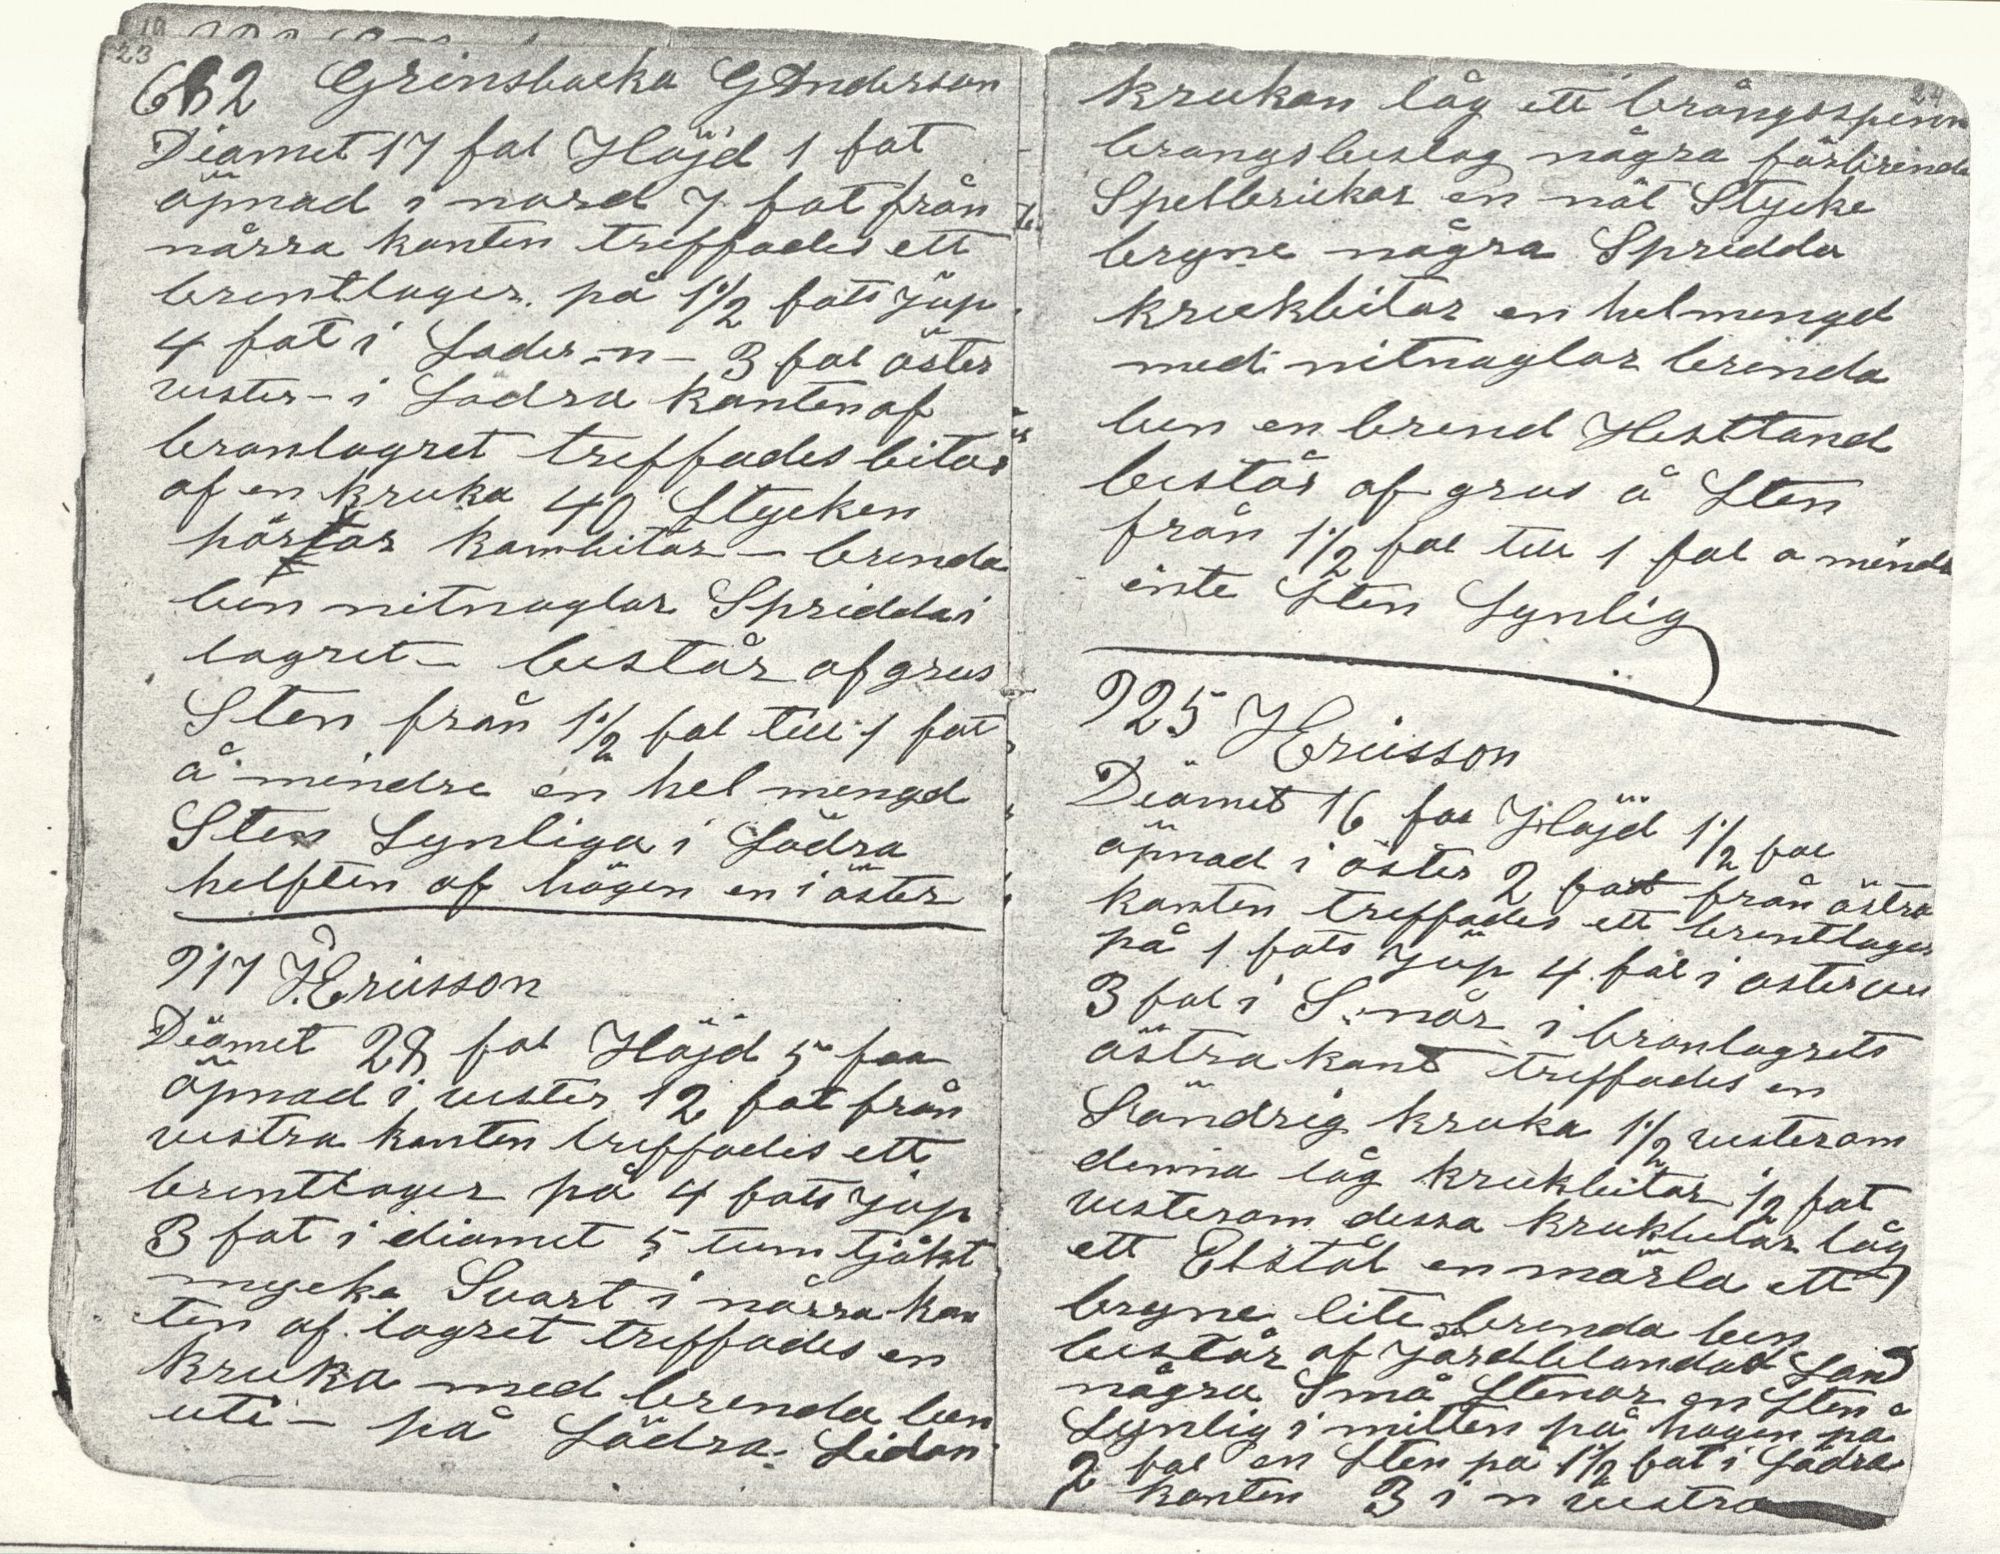 23
682 Grinsbacka G Anderson
Diamet 17 fot Höjd 1 fot
öpnad i nord 7 fot från
nårra kanten treffades ett
brentlager på 1 1/2 fots jup
4 fot i Söder -n- 3 fot öster
vester - i Södra kanten af
branlagret treffades bitar
af en kruka 40 Stycken
pärlor kambitar - brenda
ben nitnaglar Spridda i
lagret - består af grus
Sten från 1 1/2 fot till 1 fot
å mindre en hel mengd
Sten Synliga i Södra
helften af högen en i öster
917 J. Ericsson
Diamet 28 fot Höjd 5 fot
öpnad i vester 12 fot från
vestra kanten treffades ett
brentlager på 4 fots jup
3 fot i diamet 5 tum tjåkt
mycke Svart i nårra kan
ten af lagret treffades en
kruka med brenda ben
uti - på Södra Sidan
24
krukan låg ett brångsspenn
brangsbeslag några förbrenda
Spelbrickor en nöt Stycke
bryne några Spridda
krukbitar en hel mengd
med nitnaglar brenda
ben en brend Hesttand
består af grus å Sten
från 1 1/2 fot till 1 fot a mindr
inte Sten Synlig
925 J Ericsson
Diamet 16 fot Höjd 1 1/2 fot
öpnad i öster 2 fot från östra
kanten treffades ett brentlager
på 1 fots jup 4 fot i öster ve
3 fot i S. når i branlagrets
östra kant treffades en
Sändrig kruka 1 1/2 vesterom
denna låg krukbitar 1/2 fot
vesterom dessa krukbitar låg
ett Elstål en märla ett
bryne lite brenda ben
består af jordblandad Sand
några Små Stenar en Sten
Synlig i mitten på högen på
2 fot en Sten på 1 1/2 fot i Södra
kanten 3 i n vestra